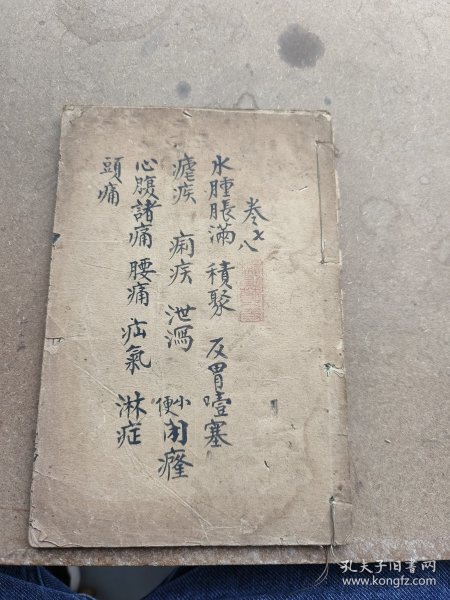 卷七八
水腫脹滿 積聚 反胃噎塞
瘧疾 痢疾 泄瀉 小便閉癃
心腹諸痛 腰痛 疝氣 淋症
頭痛
孔夫子旧书网
www.kongfz.com